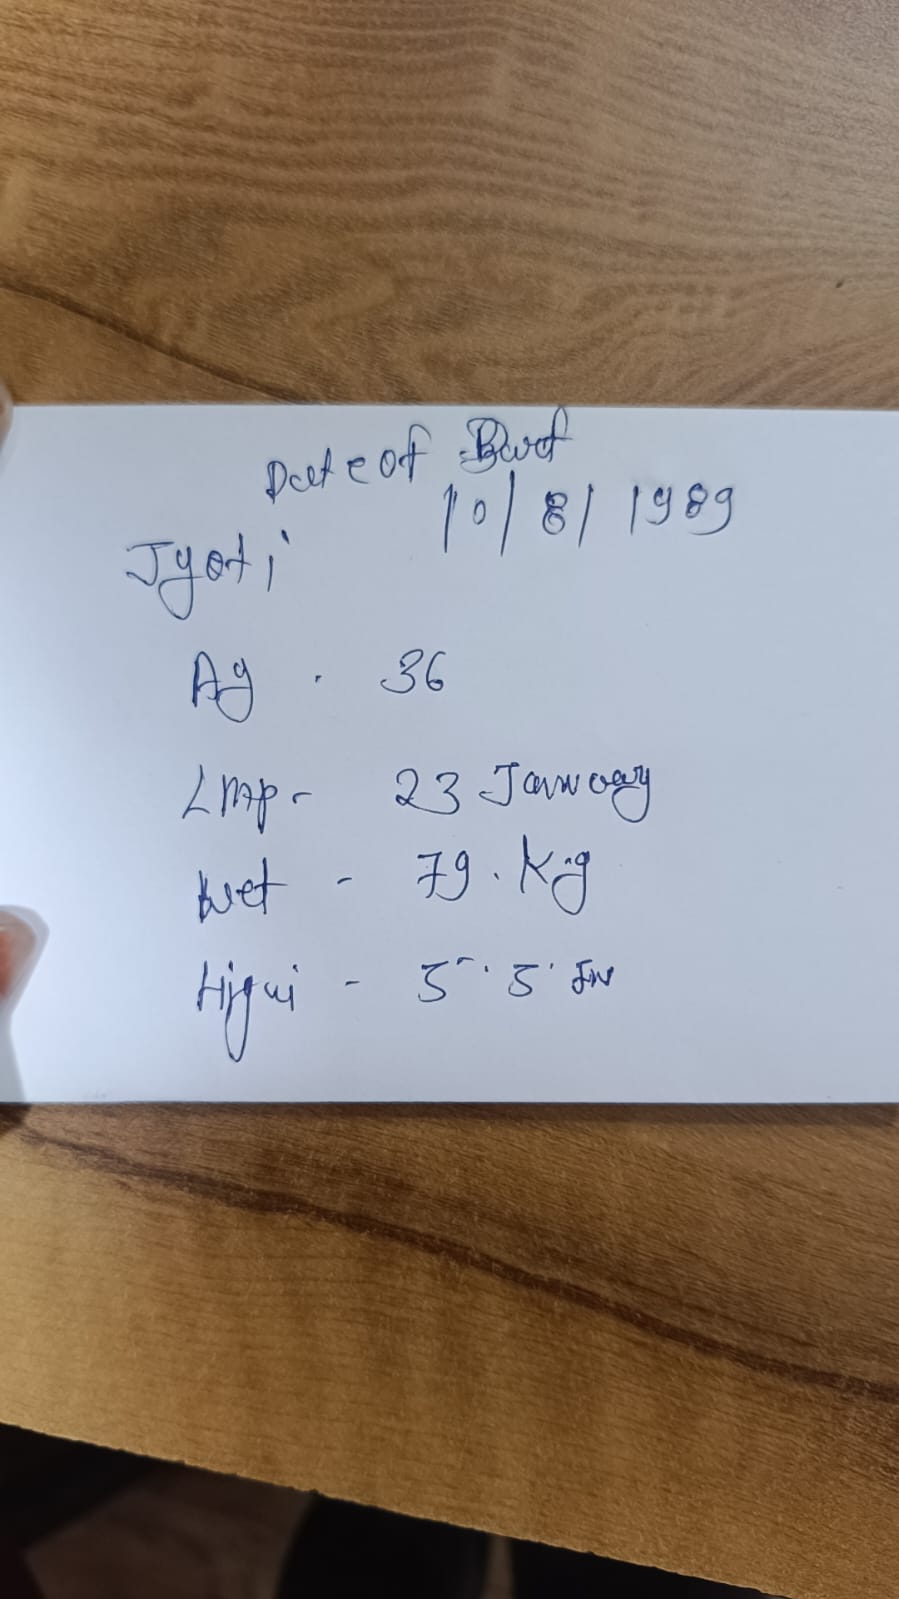 Date of Birt
10/8/1989
Jyoti
Ag . 36
LMP - 23 January
Wet - 79. Kg
5 . 5 In